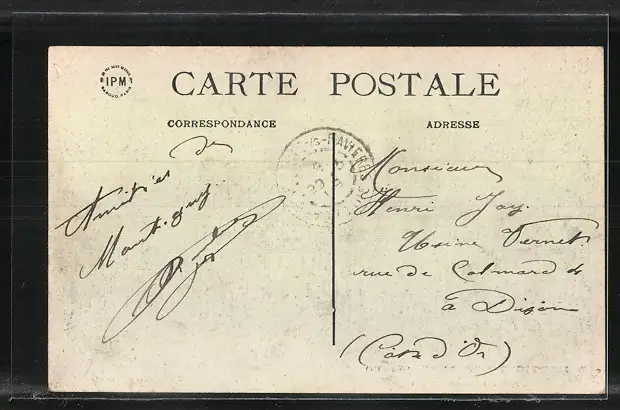 IPM
CARTE POSTALE
CORRESPONDANCE
ADRESSE
Amitiés de
Montigny
Monsieur
Henri Joy.
Usine Vernet
rue de Colmard 4
à Dijon
(Côte d'Or)